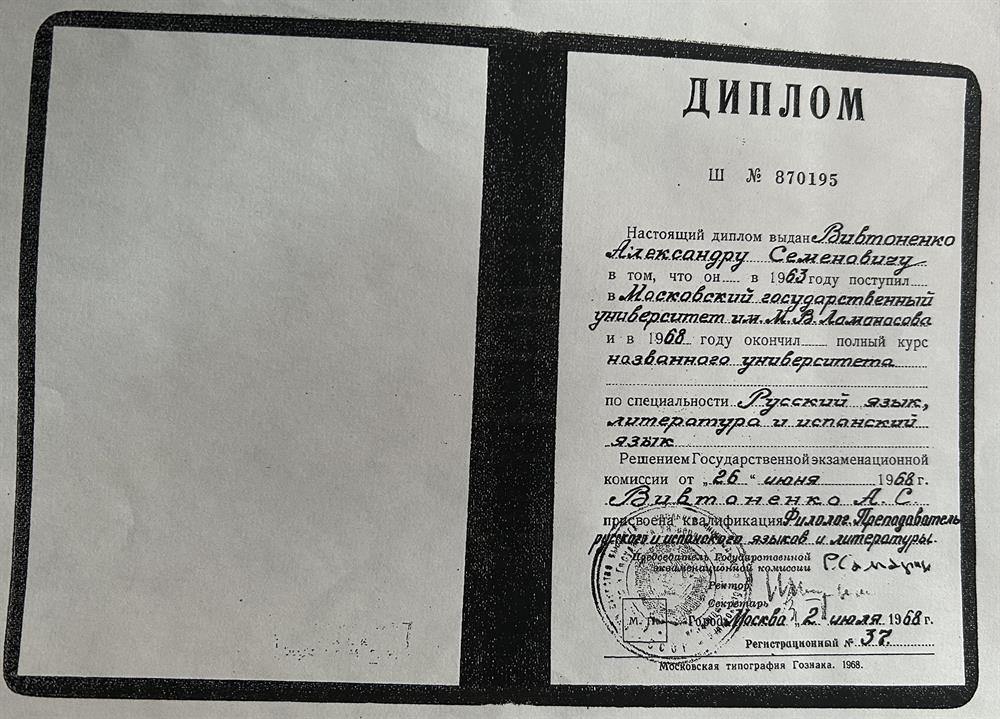 ДИПЛОМ
Ш № 870195
Настоящий диплом выдан Вивтоненко
Александру Семеновичу
в том, что он в 1963 году поступил
в Московский государственный
университет им. М. В. Ломоносова
и в 1968 году окончил полный курс
названного университета
по специальности Русский язык,
литература и испанский
язык
Решением Государственной экзаменационной
комиссии от „26“ июня 1968 г.
Вивтоненко А. С.
присвоена квалификация Филолог. Преподаватель
русского и испанского языков и литературы.
Председатель Государственной
экзаменационной комиссии Р. Самарин
Ректор
Секретарь
М. П. Город Москва „2 июля 1968 г.
Регистрационный № 37.
Московская типография Гознака. 1968.